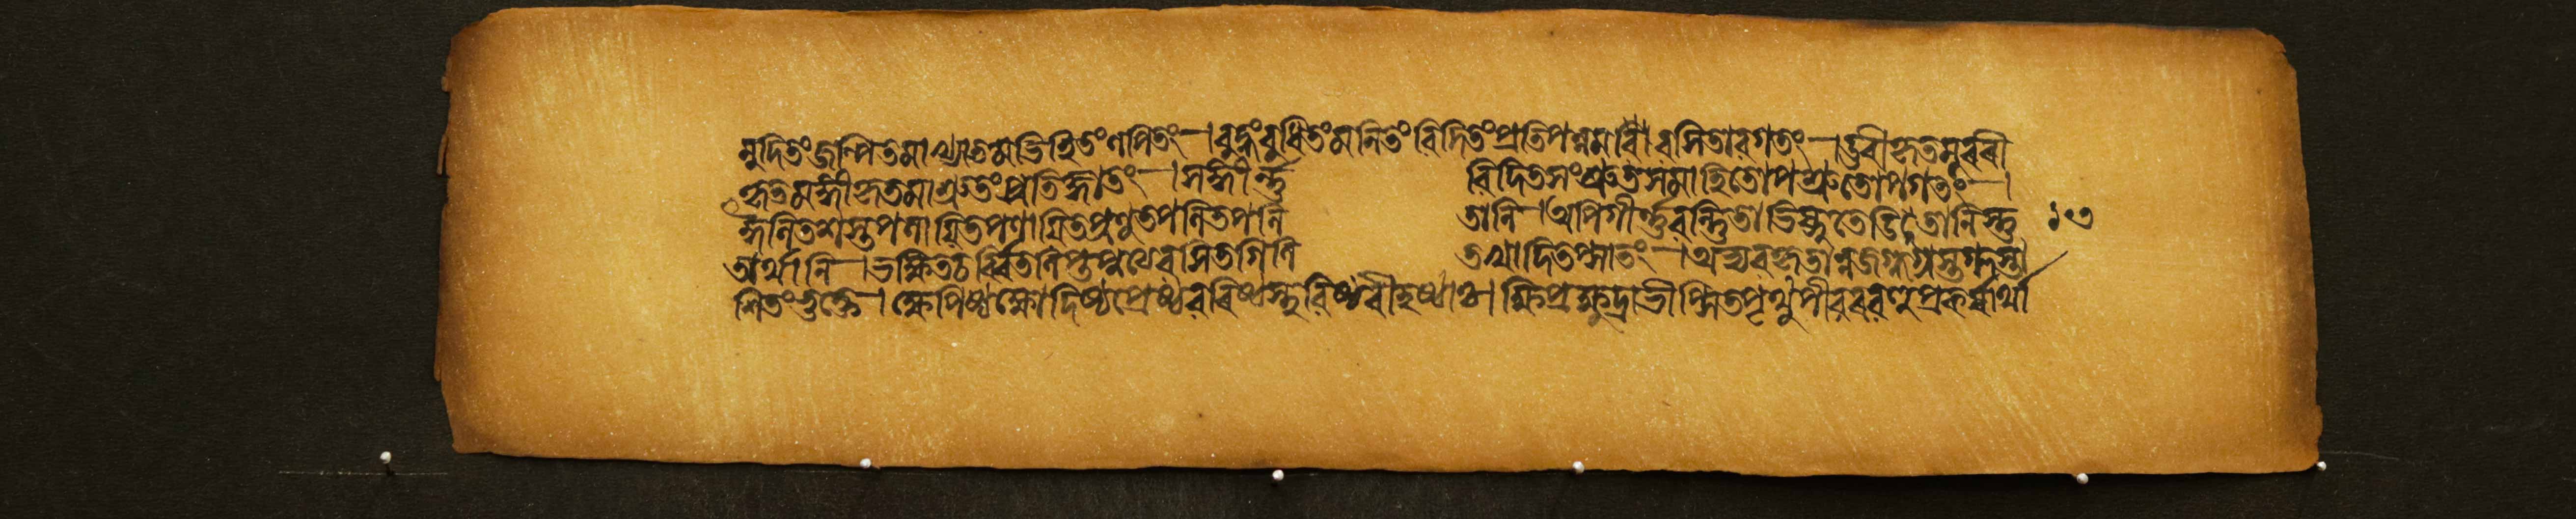 মুদিতংজল্পিতমাখ্যাতমভিহিতংলপিতং।বুদ্ধংবুধিতংমনিতংবিদিতংপ্রতিপন্নমবসিতাবগতং।উরীকৃতমুররী
কৃতমঙ্গীকৃতমাশ্রুতংপ্রতিজ্ঞাতং।সঙ্গীর্ণ্ণ বিদিতসংশ্রুতসমাহিতোপশ্রুতোপগতং।
লিতশস্তপনায়িতপণায়িতপ্রণুতপনিতপনি তানি।অপিগীর্ণ্ণবর্ণ্ণিতাভিষ্টুতেডিতানিস্তু
তার্থানি।ভক্ষিতচর্ব্বিতলিপ্তপ্রত্যবসিতগিলি তখাদিতপ্সাতং।অভ্যবহৃতান্নজগ্ধগ্রস্তগ্লস্তা
শিতংভুক্তে।ক্ষেপিষ্ঠক্ষোদিষ্ঠপ্রেষ্ঠবরিষ্ঠস্থবিষ্ঠবংহিষ্ঠাঃ।ক্ষিপ্রক্ষুদ্রাভীপ্সিতপৃথুপীবরবহুপ্রকর্ষার্থা